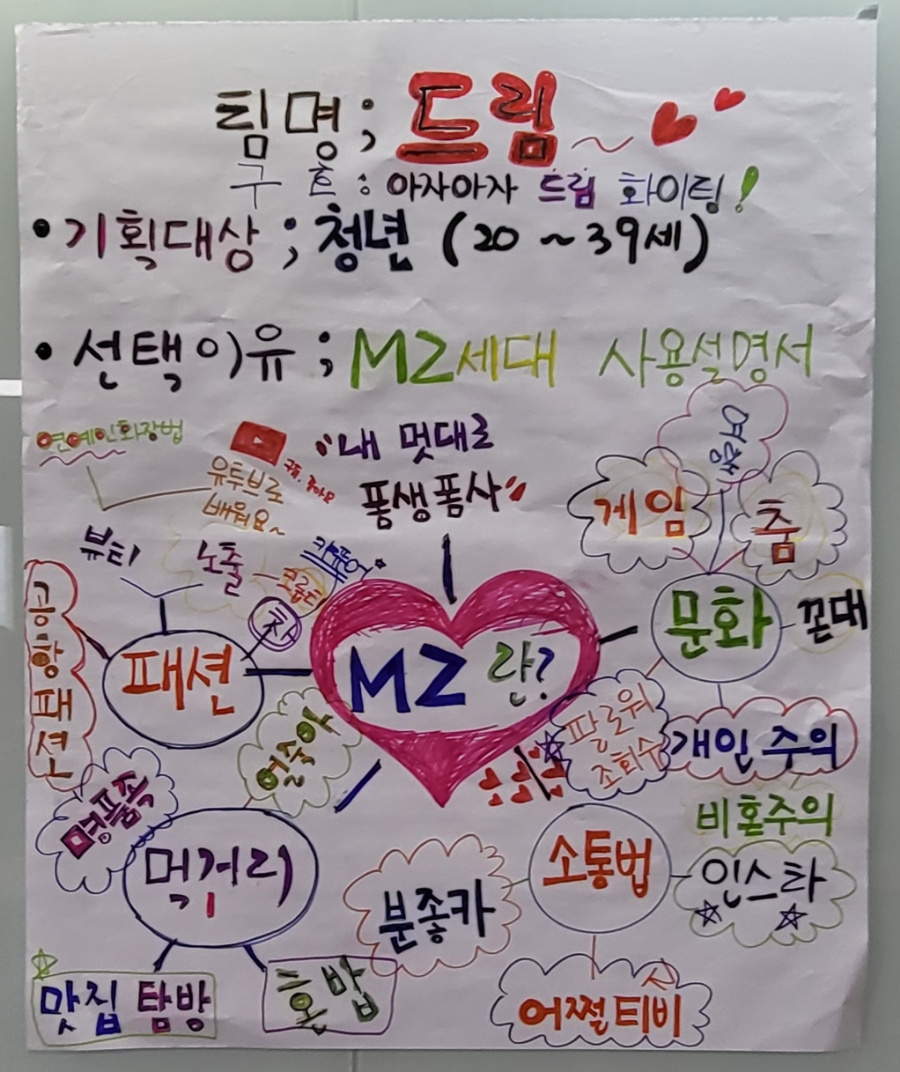 팀명; 드림~
구호: 아자아자 드림 화이팅!
• 기획대상; 청년 (20~39세)
• 선택이유; MZ세대 사용설명서
연예인화장법
유투브로
배워요~
구독, 좋아요
"내 멋대로
폼생폼사"
여행
게임
춤
뷰티
노출
크롭티
차
공항패션
패션
MZ 란?
문화
꼰대
얼죽아
팔로워
조회수
개인주의
비혼주의
명품족
먹거리
소통법
인스타
분좋카
맛집 탐방
혼밥
어쩔티비